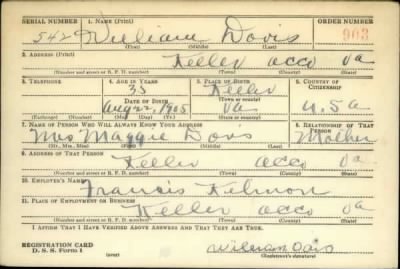 SERIAL NUMBER 1. NAME (Print) ORDER NUMBER
542 William Davis 903
(First) (Middle) (Last)
2. ADDRESS (Print)
Keller acco Va
(Number and street or R. F. D. number) (Town) (County) (State)
3. TELEPHONE 4. AGE IN YEARS 5. PLACE OF BIRTH 6. COUNTRY OF CITIZENSHIP
35 Keller
DATE OF BIRTH (Town or county)
Aug 22 1905 Va U.S a
(Exchange) (Number) (Mo.) (Day) (Yr.) (State or country)
7. NAME OF PERSON WHO WILL ALWAYS KNOW YOUR ADDRESS 8. RELATIONSHIP OF THAT PERSON
Mrs Maggie Davis Mother
(Mr., Mrs., Miss) (First) (Middle) (Last)
9. ADDRESS OF THAT PERSON
Keller acco Va
(Number and street or R. F. D. number) (Town) (County) (State)
10. EMPLOYER'S NAME
Francis Kelmon
11. PLACE OF EMPLOYMENT OR BUSINESS
Keller acco Va
(Number and street or R. F. D. number) (Town) (County) (State)
I AFFIRM THAT I HAVE VERIFIED ABOVE ANSWERS AND THAT THEY ARE TRUE.
REGISTRATION CARD
D. S. S. Form 1 (over) William Davis
(Registrant's signature)